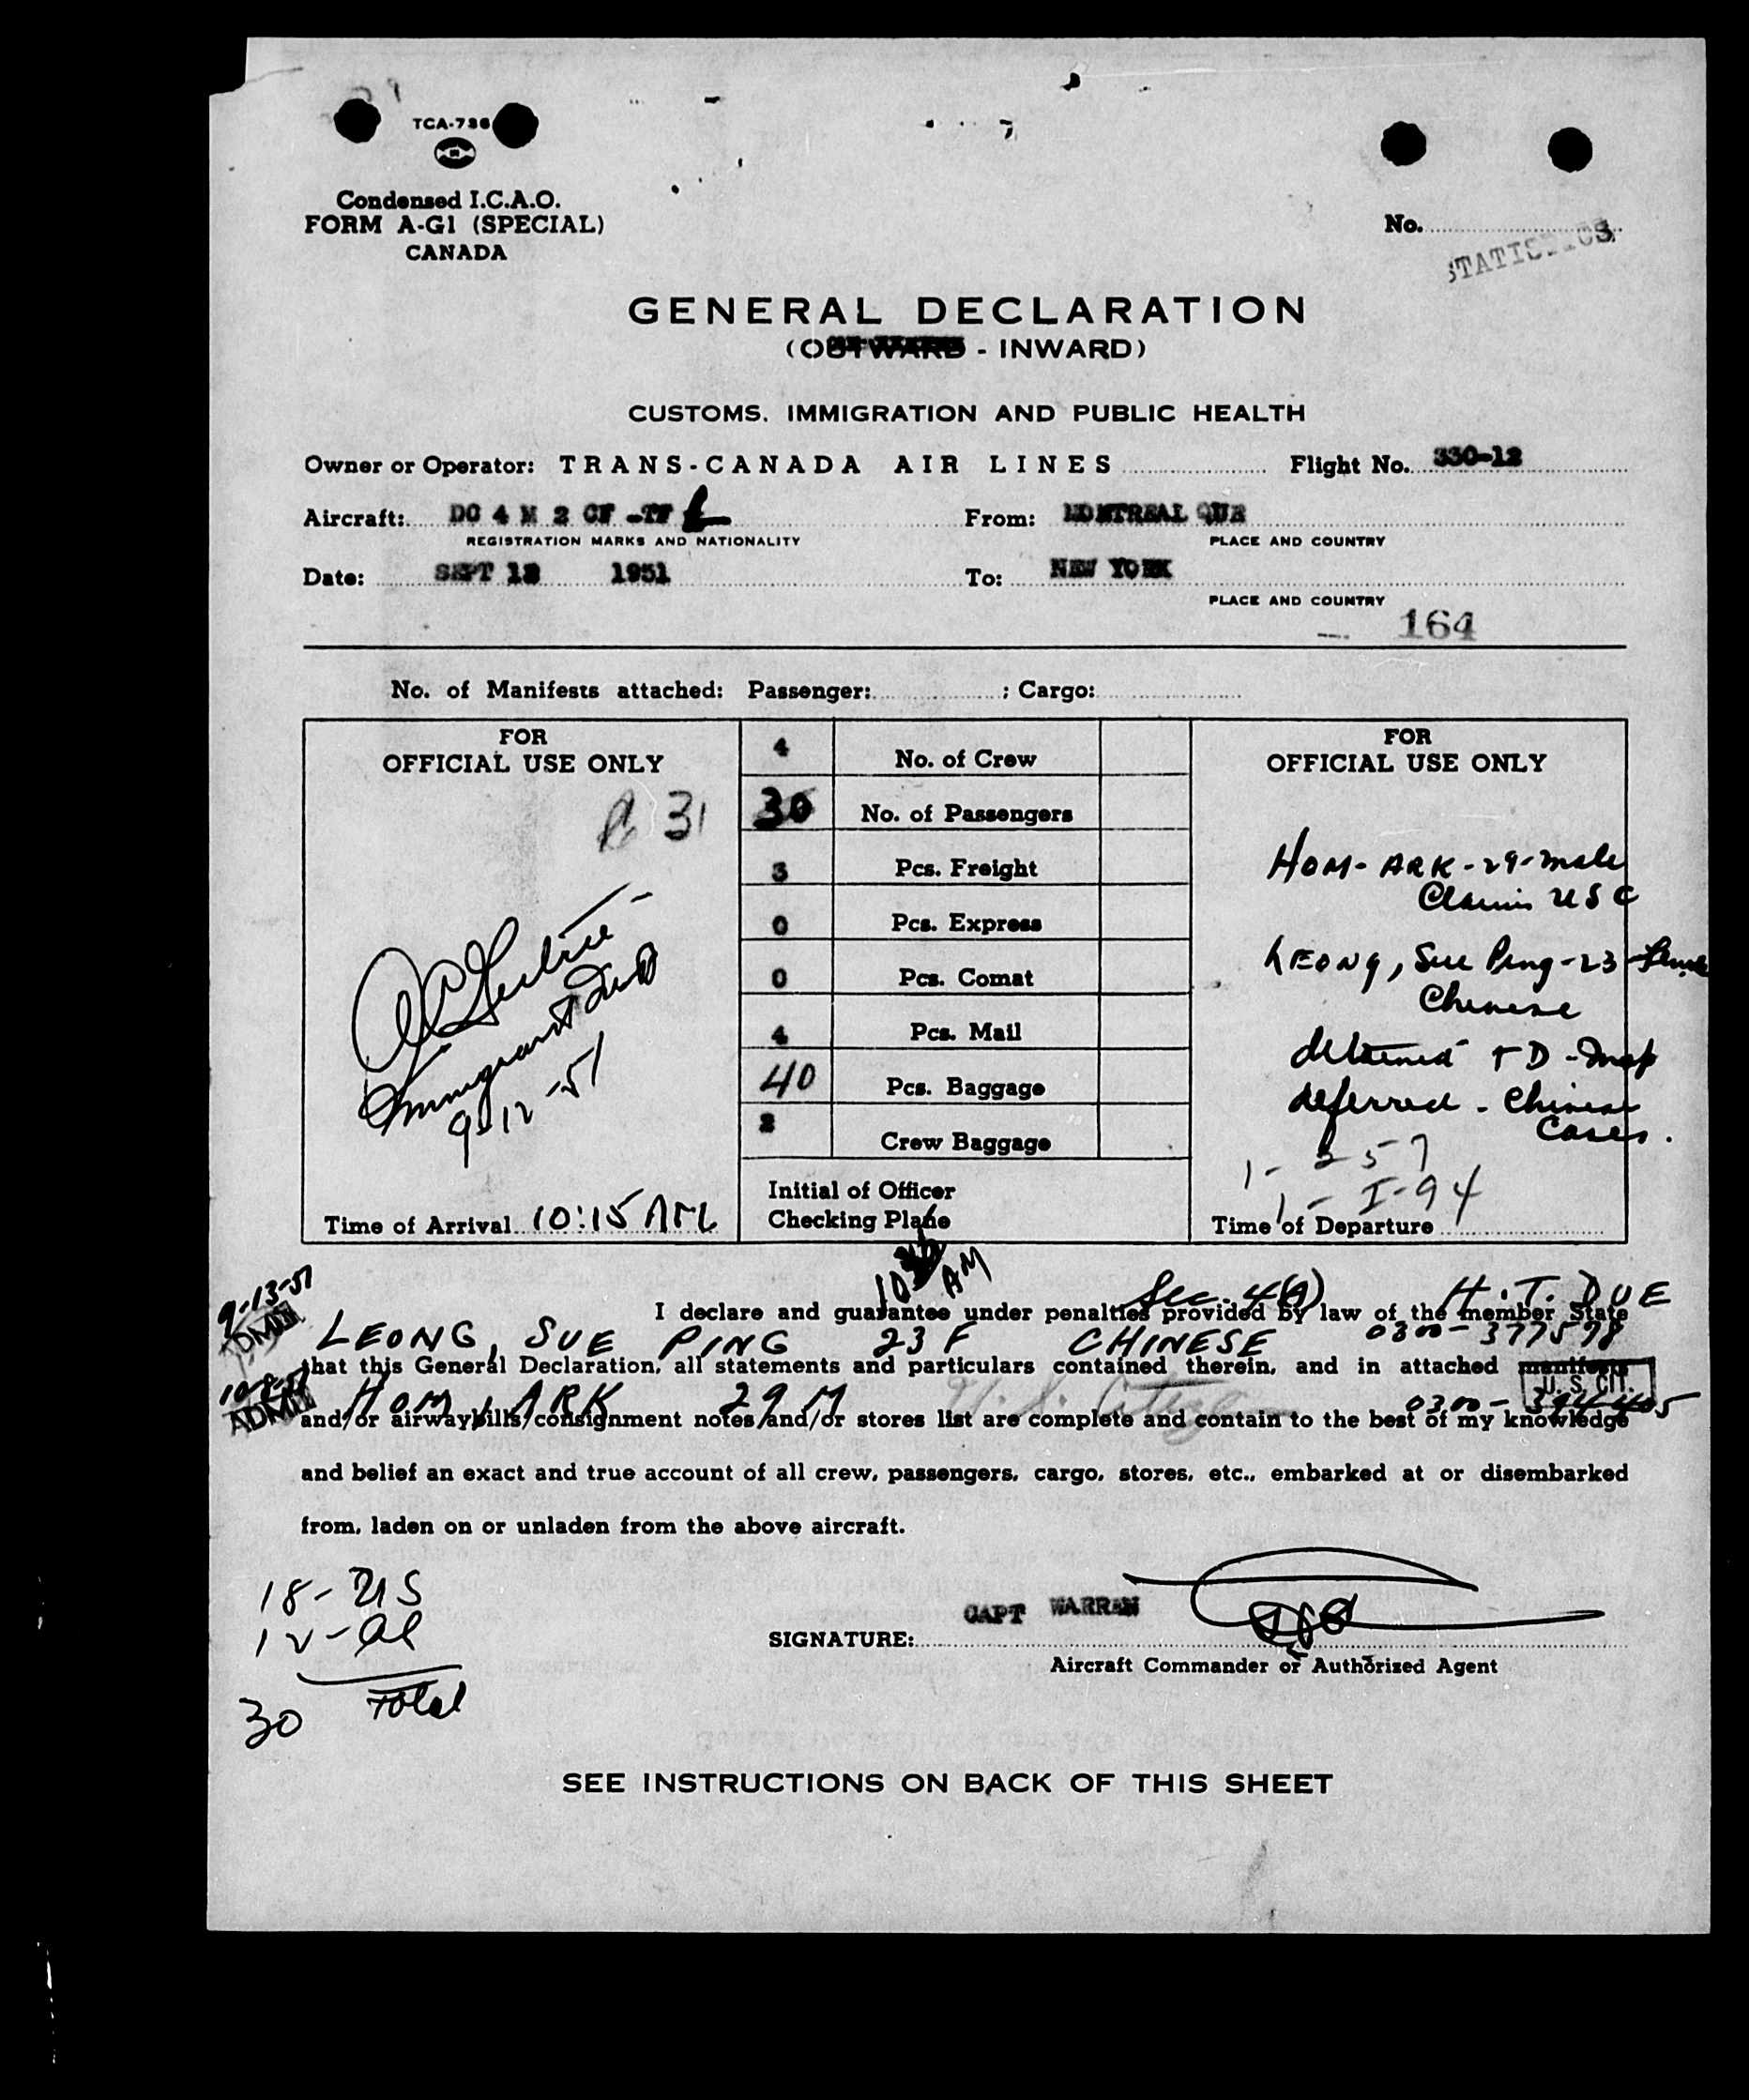 TCA-736
Condensed I.C.A.O.
FORM A-G1 (SPECIAL)
CANADA
No.
STATISTICS
GENERAL DECLARATION
(OUTWARD - INWARD)
CUSTOMS, IMMIGRATION AND PUBLIC HEALTH
Owner or Operator: TRANS-CANADA AIR LINES Flight No. 330-12
Aircraft: DC 4 M 2 CF -TF L From: MONTREAL QUE
REGISTRATION MARKS AND NATIONALITY PLACE AND COUNTRY
Date: SEPT 12 1951 To: NEW YORK
PLACE AND COUNTRY
164
No. of Manifests attached: Passenger: ; Cargo:
FOR
OFFICIAL USE ONLY
31
Immigrant Insp
9-12-51
Time of Arrival 10:15 AM
4 No. of Crew
30 No. of Passengers
3 Pcs. Freight
0 Pcs. Express
0 Pcs. Comat
4 Pcs. Mail
40 Pcs. Baggage
2 Crew Baggage
Initial of Officer
Checking Plane
AM
FOR
OFFICIAL USE ONLY
HOM-ARK-29-male
Claims USC
LEONG, Sue Ping-23-Female
Chinese
detained TD-Insp
deferred - Chinese
Cases.
1- 257
1- I-94
Time of Departure
9-13-51 Sec. 4(A) H.T. DUE
I declare and guarantee under penalties provided by law of the member State
ADMD LEONG, SUE PING 23 F CHINESE 0300-377598
that this General Declaration, all statements and particulars contained therein, and in attached manifests
ADMD HOM, ARK 29 M U.S. Citizen U.S. CIT. 0300-394405
and/or airwaybills/consignment notes/and/or stores list are complete and contain to the best of my knowledge
and belief an exact and true account of all crew, passengers, cargo, stores, etc., embarked at or disembarked
from, laden on or unladen from the above aircraft.
18-US
12-al
30 Total
CAPT WARREN
SIGNATURE:
Aircraft Commander or Authorized Agent
SEE INSTRUCTIONS ON BACK OF THIS SHEET